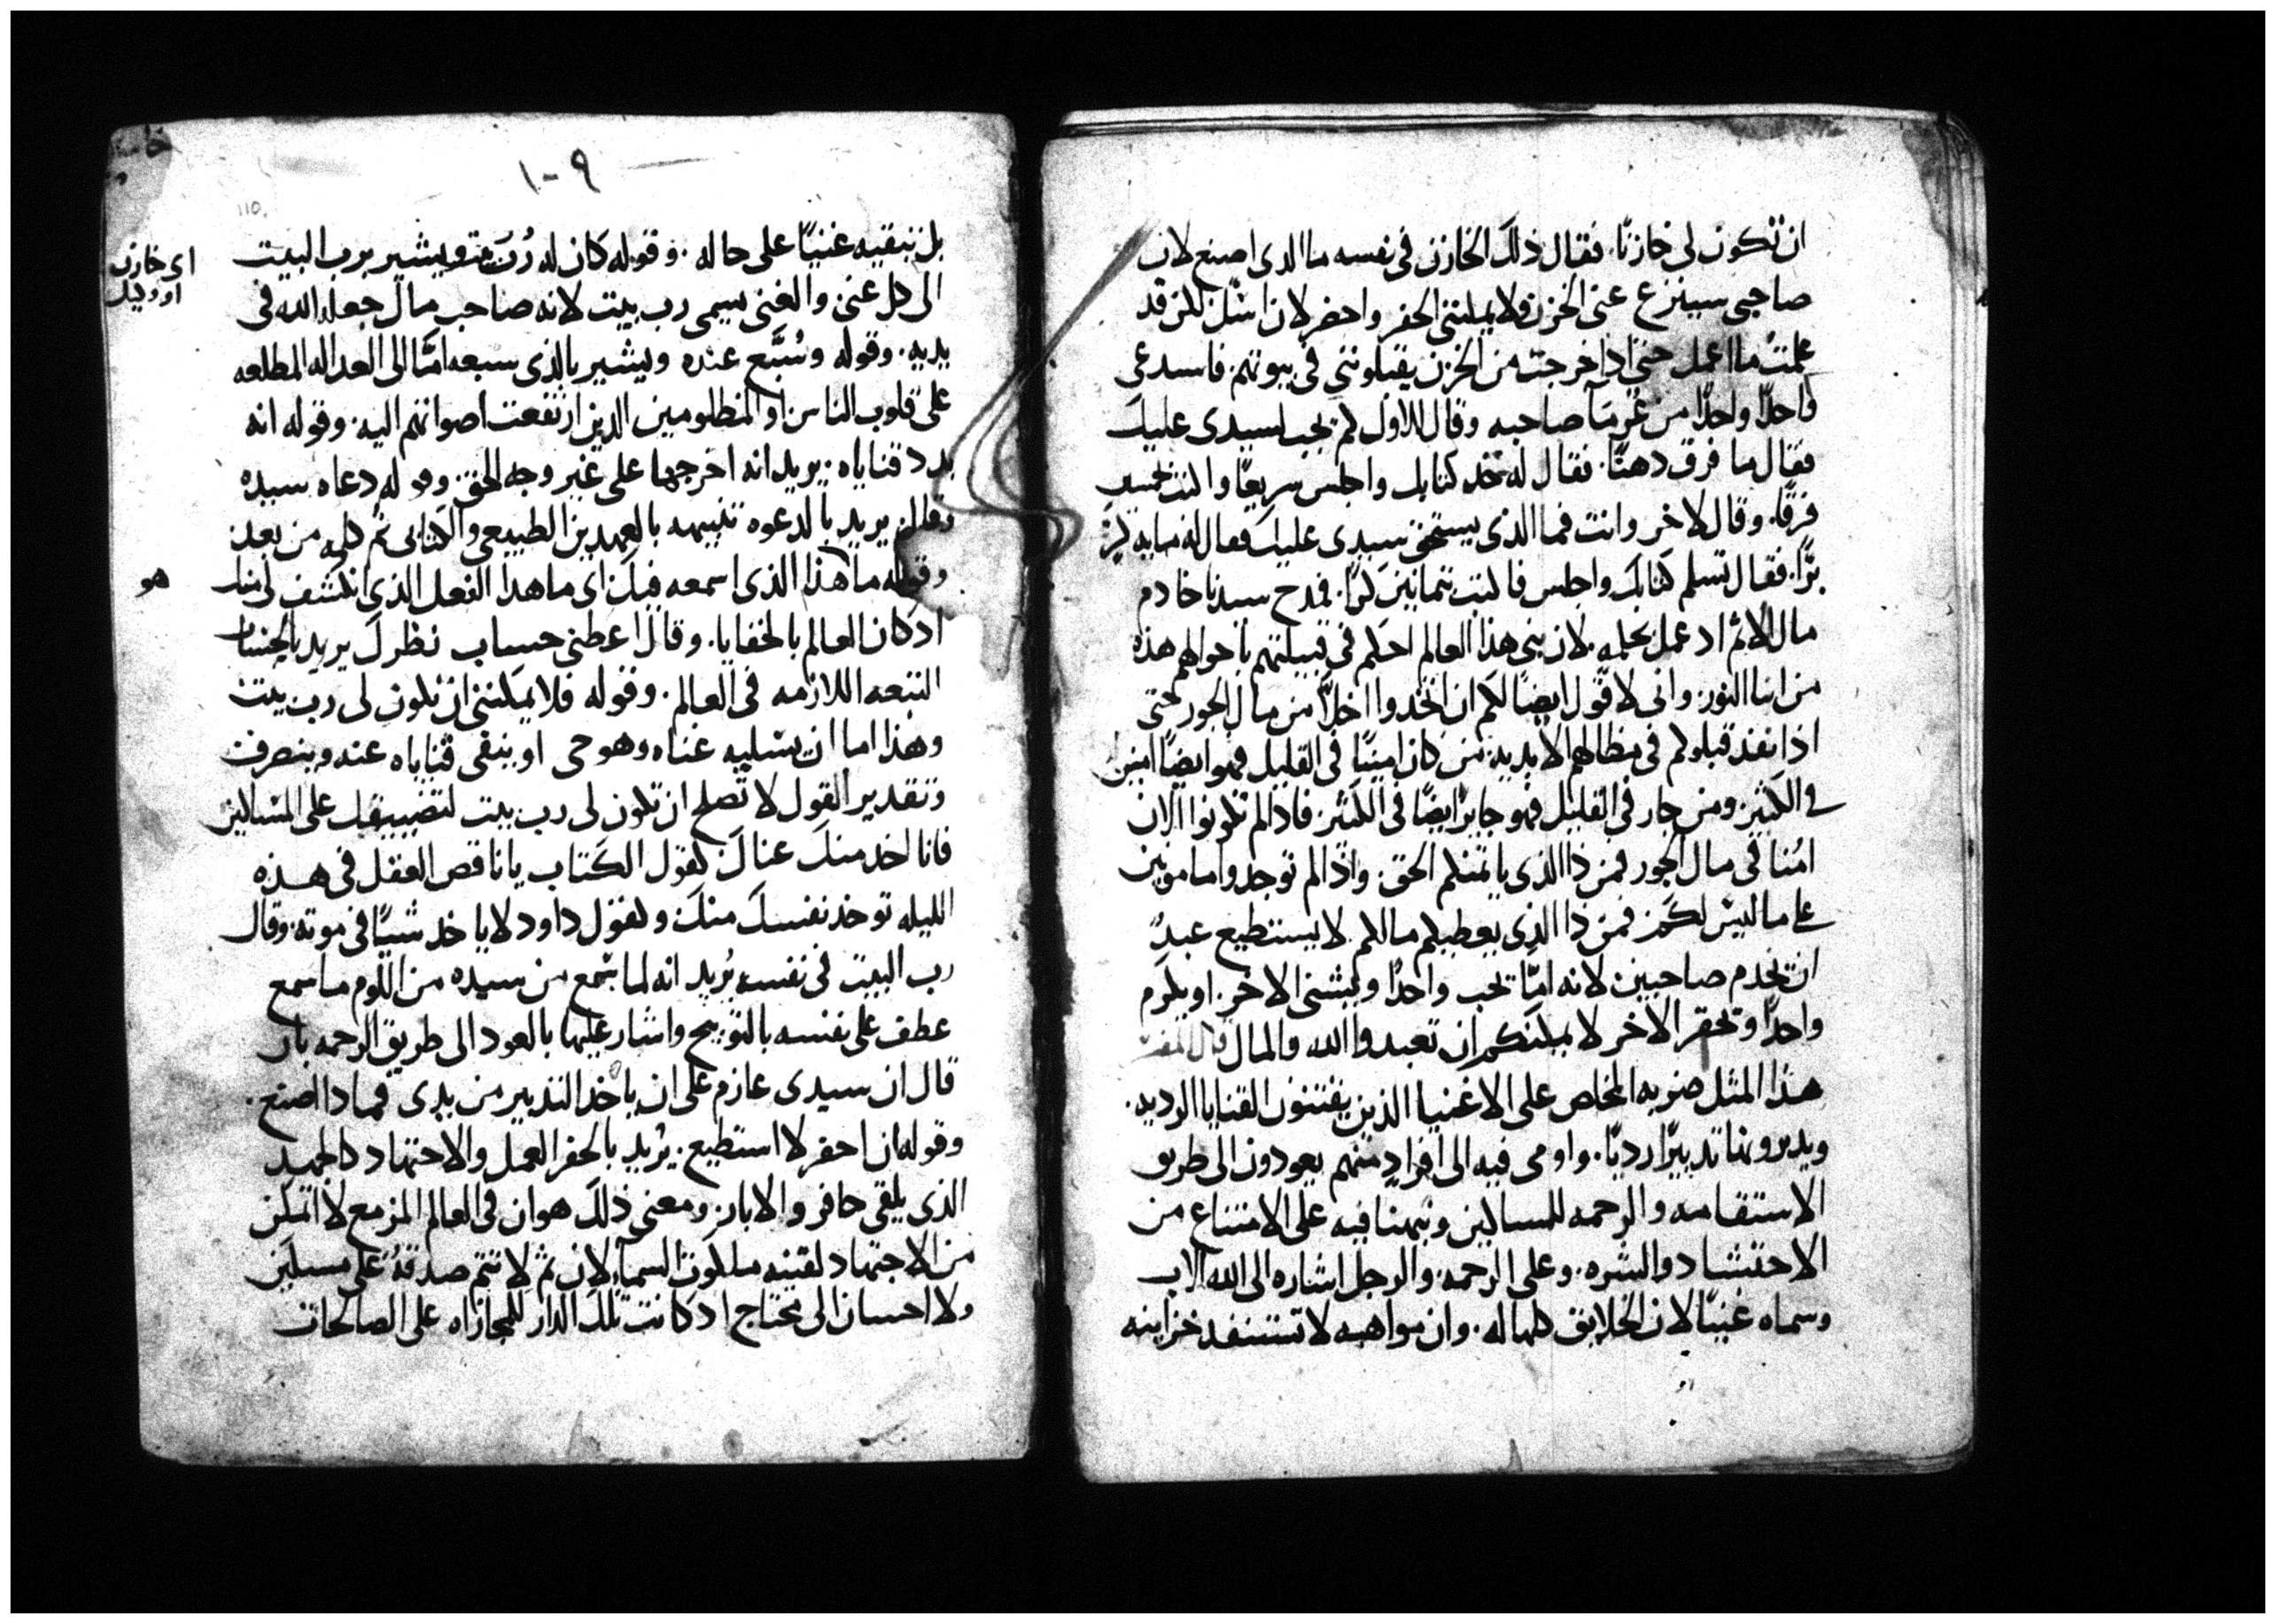 ان تكون لى خازنًا. فقال ذلك الخازن فى نفسه ما الدى اصنع لان
صاحبى سينزع عنى الخزن فلا يمكننى الحفر واحضر لان اسل لكن قد
علمتُ ما اعمل حتى ادا خرجت من الخزن يقبلوننى فى بيوتهم. فاسدعى
واحدًا واحدًا من غرمآ صاحبه وقال للاول كم يجب لسيدى عليك
فقال ما فرق دهنًا. فقال له خد كتابك واجلس سريعًا واكتب خمسين
فرقًا. وقال لاخر وانت فما الذى يستحق سيدى عليك فعال له مايه كر
برًّا. فقال تسلم كتابك واجلس فاكتب ثمانين كرًا. فمدح سيدنا خادم
مال الاثم اد عمل بحلمه. لان بنى هذا العالم احكم فى قبيلتهم باحوالهم هذه
من ابنا النور. وانى لاقول ايضًا لكم ان اتخدوا اخلًّا من مال الجور حتى
اذا نفد قبلوكم فى مظالهم الابديه. من كان امينًا فى القليل فهو ايضًا امين
فى الكثير. ومن جار فى القليل فهو جاير ايضًا فى الكثير. فادا لم تكونوا الان
امُنا فى مال الجور فمن ذا الذى ياتمنكم الحق. واذا لم توجدوا مامونين
على ما ليس لكم فمن ذا الذى يعطيكم مالكم. لا يستطيع عبدٌ
ان يخدم صاحبين لانه امّا يحب واحدًا ويشنى الاخر. او يكرم
واحدًا ويحقر الاخر لا يمكنكم ان تعبدوا الله والمال قال المفسر
هذا المثل ضربه المخلص على الاغنيا الذين يقتنون القنايا الرديه.
ويدبرونها تدبيرًا رديًا. واومى فيه الى افرادٍ منهم يعودون الى طريق
الاستقامه والرحمه للمساكين ونبهنا فيه على الامتناع من
الاحتشاد والشره. وعلى الرحمه. والرجل اشاره الى الله الاب
وسماه غنيًا لان الخلايق كلها له. وان مواهبه لا تستنفد خزاينه
١٠٩
110
بل تبقيه غنيًا على حاله. وقوله كان له رُبّ بيت ويشير برب البيت
الى كل غنى والغنى يسمى رب بيت لانه صاحب مال جعله الله فى
يديه. وقوله وسُبّع عنده ويشير بالذى سبعه امّا الى العداله المطلعه
على قلوب الناس او المظلومين الدين ارتفعت اصواتهم اليه. وقوله انه
بدد قناياه. يريد انه اخرجها على غير وجه الحق. وقوله دعاه سيده
وقال يريد بالدعوه تنبيهه بالعهدين الطبيعى والكتابى ثم كلمه من بعد
وقوله ما هذا الذى اسمعه فيك اى ما هدا الفعل الذى انكشف لى منك
ادكان العالم بالخفايا. وقال اعطنى حساب نظرك يريد بالحساب
التبعه اللازمه فى العالم. وقوله فلا يمكننى ان تكون لى رب بيت
وهذا اما ان يسلبه غناه وهو حى او يبقى قناياه عنده وينصرف
وتقدير القول لا تصلح ان تكون لى رب بيت لتضييقك على المساكين
فانا اخد منك غناك لقول الكتاب يا ناقص العقل فى هذه
الليله توخد نفسك منك ولقول داود لا ياخد شيًا فى موته. وقال
رب البيت فى نفسه يُريد انه لما سمع من سيده من اللوم ما سمع
عطف على نفسه بالتوبيخ واشار عليها بالعود الى طريق الرحمه بان
قال ان سيدى عازم على ان ياخد التدبير من يدى فمادا اصنع.
وقوله ان احفر لا استطيع. يُريد بالحفر العمل والاجتهاد كالجهد
الذى يلقى حافر والابار. ومعنى ذلك هو ان فى العالم المزمع لا اتمكن
من الاجتهاد لقتنه ملكوت السمآ. لان ثم لا تتم صدقةُ على مسكين
ولا احسان الى محتاج اد كانت تلك الدار للمجازاه على الصالحات
اى خازن
او وكيل
هو